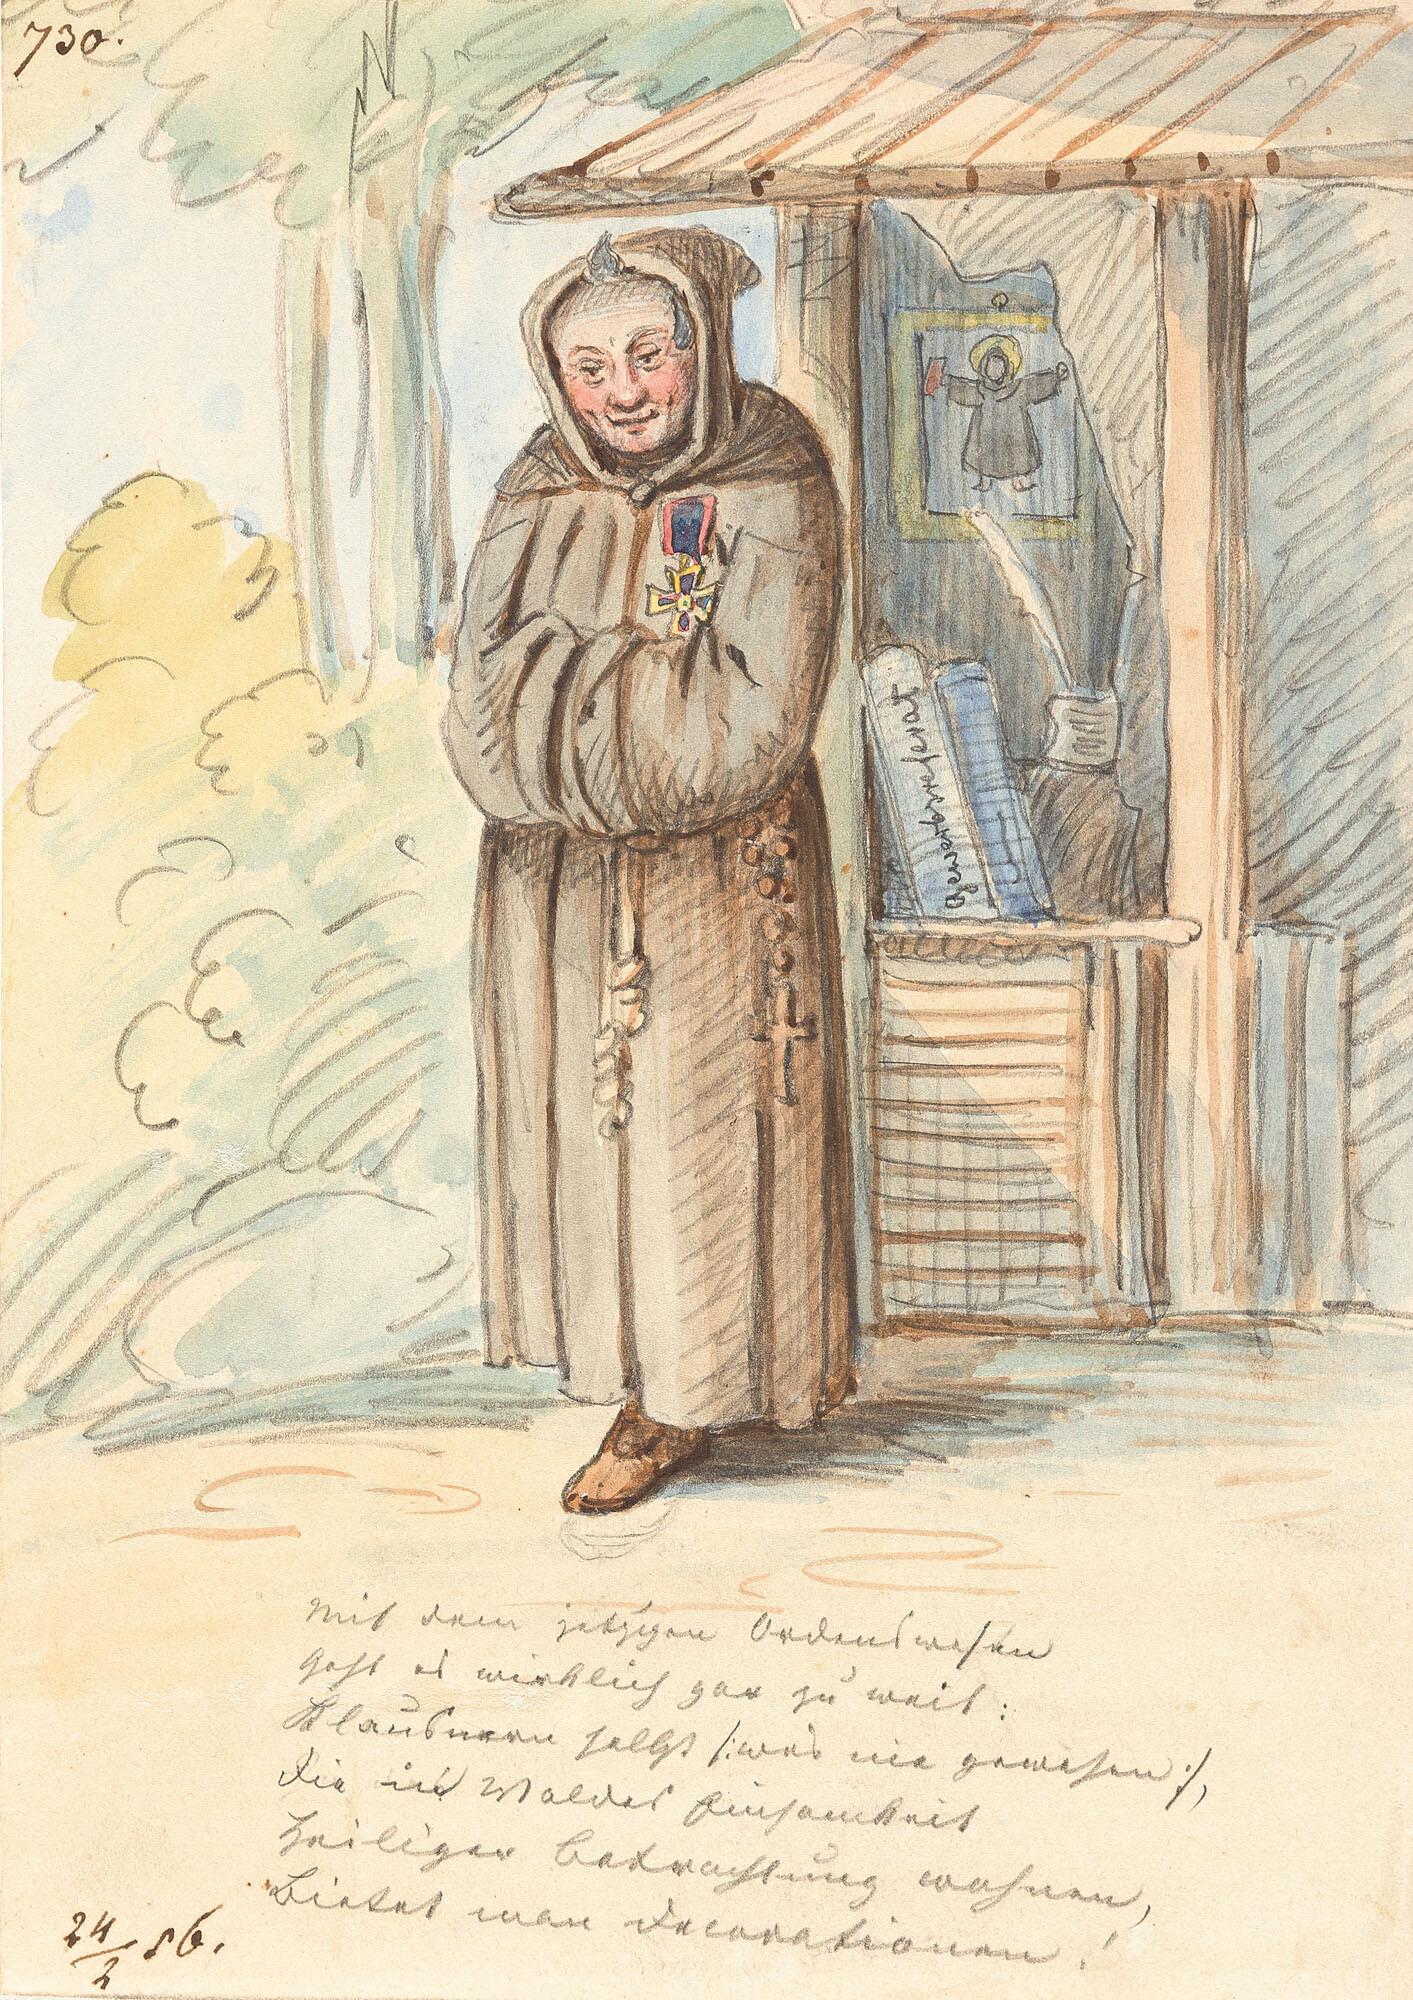 730.
Gewerbsreferat
Mit dem jetzigen Ordenswesen
Geht es wirklich gar zu weit:
Klausnern selbst /: was nie gewesen :/,
Die in Waldes Einsamkeit
Heiliger Betrachtung wohnen,
Bietet man Decorationen!
24/2 86.